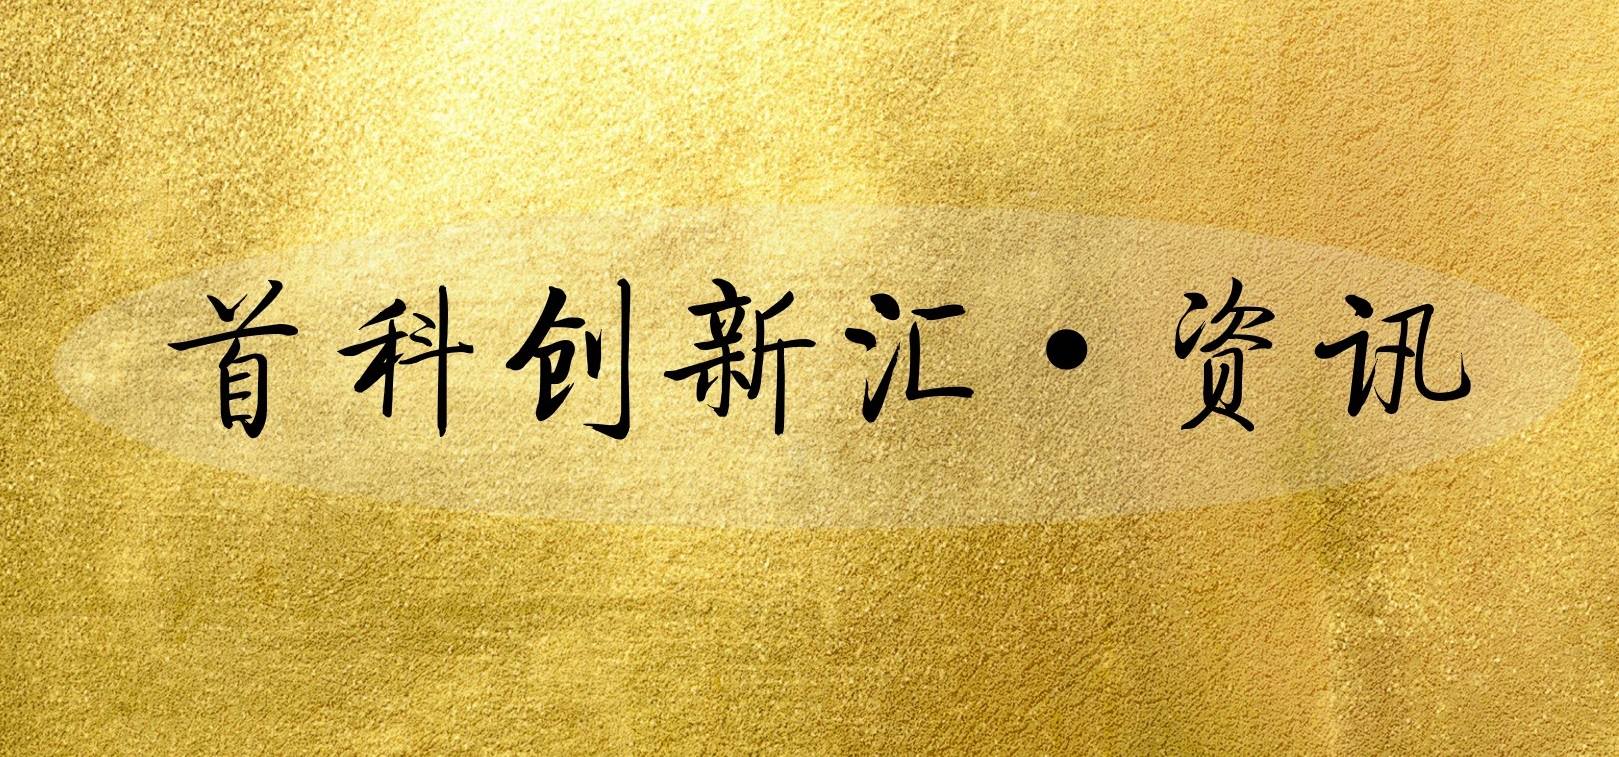 首科创新汇•资讯